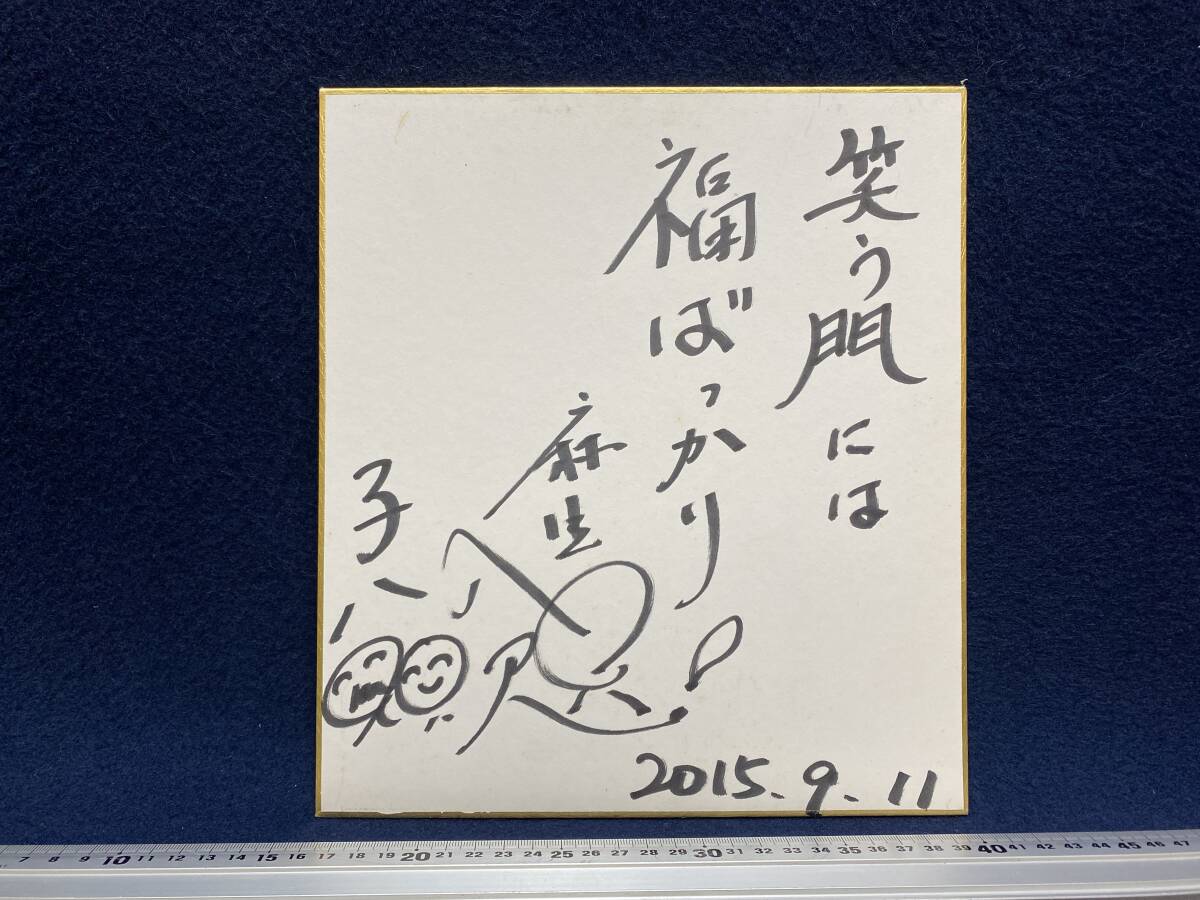 笑う門には
福ばっかり
麻生
子
2015.9.11
7 8 9 10 11 12 13 14 15 16 17 18 19 20 21 22 23 24 25 26 27 28 29 30 31 32 33 34 35 36 37 38 39 40 41 42 43 44 45 46 47